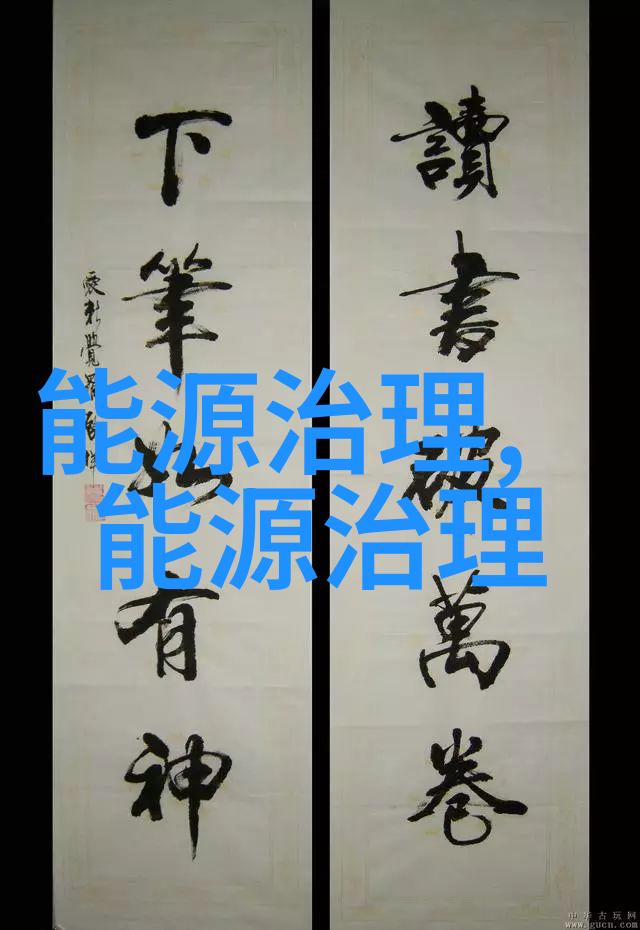 讀書破萬卷
下筆如有神
愛新覺羅
能源治理,
能源治理
中华古玩网
www.gucn.com